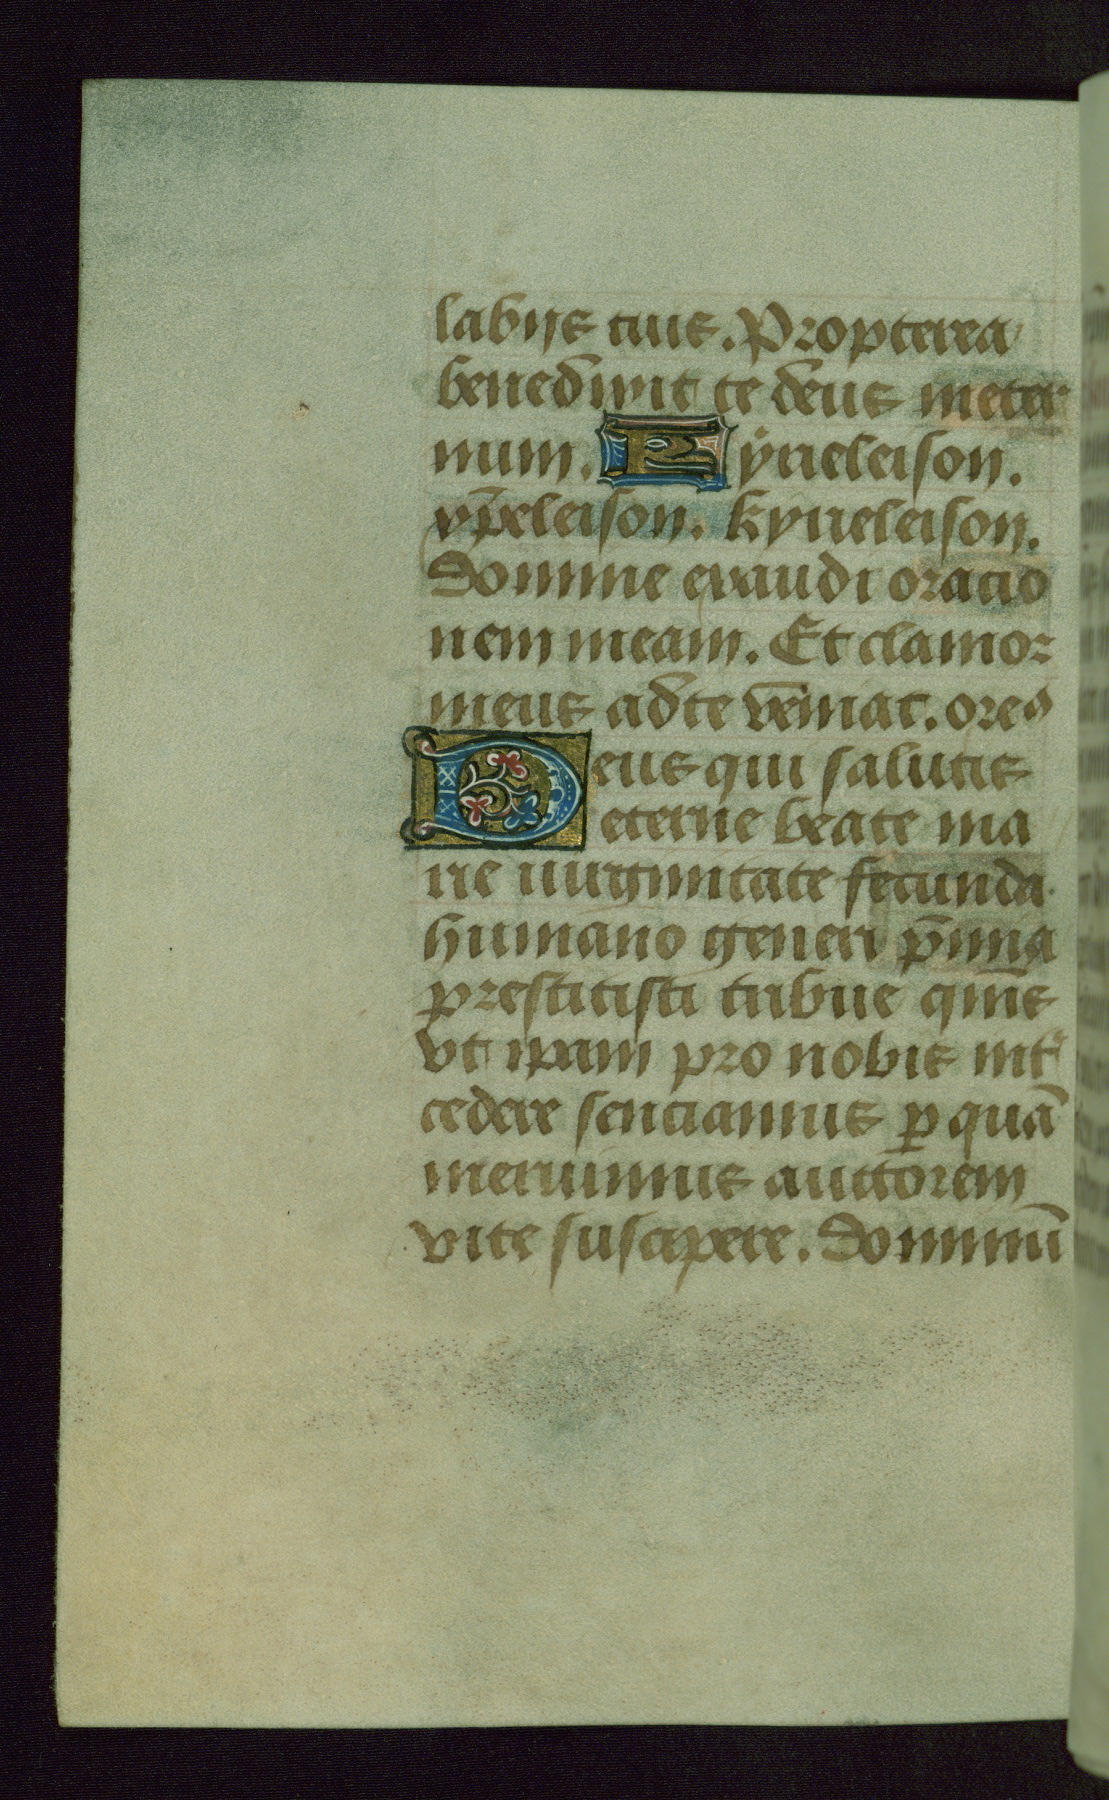 labijs tuis. Propterea
benedixit te deus ineter
num. Kyrieleison.
xp̄eleison. kyrieleison.
Domine exaudi oracio
nem meam. Et clamor
meus ad te vēniat. oreꝰ
Deus qui salutis
eterne beate ma
rie uirginitate fecunda
humano generi p̄mia
prestitisti tribue qm̄s
vt ip̄am pro nobis int᷑
cedere senciamus ꝑ quā
meruimus auctorem
vite suscipere. Dominū